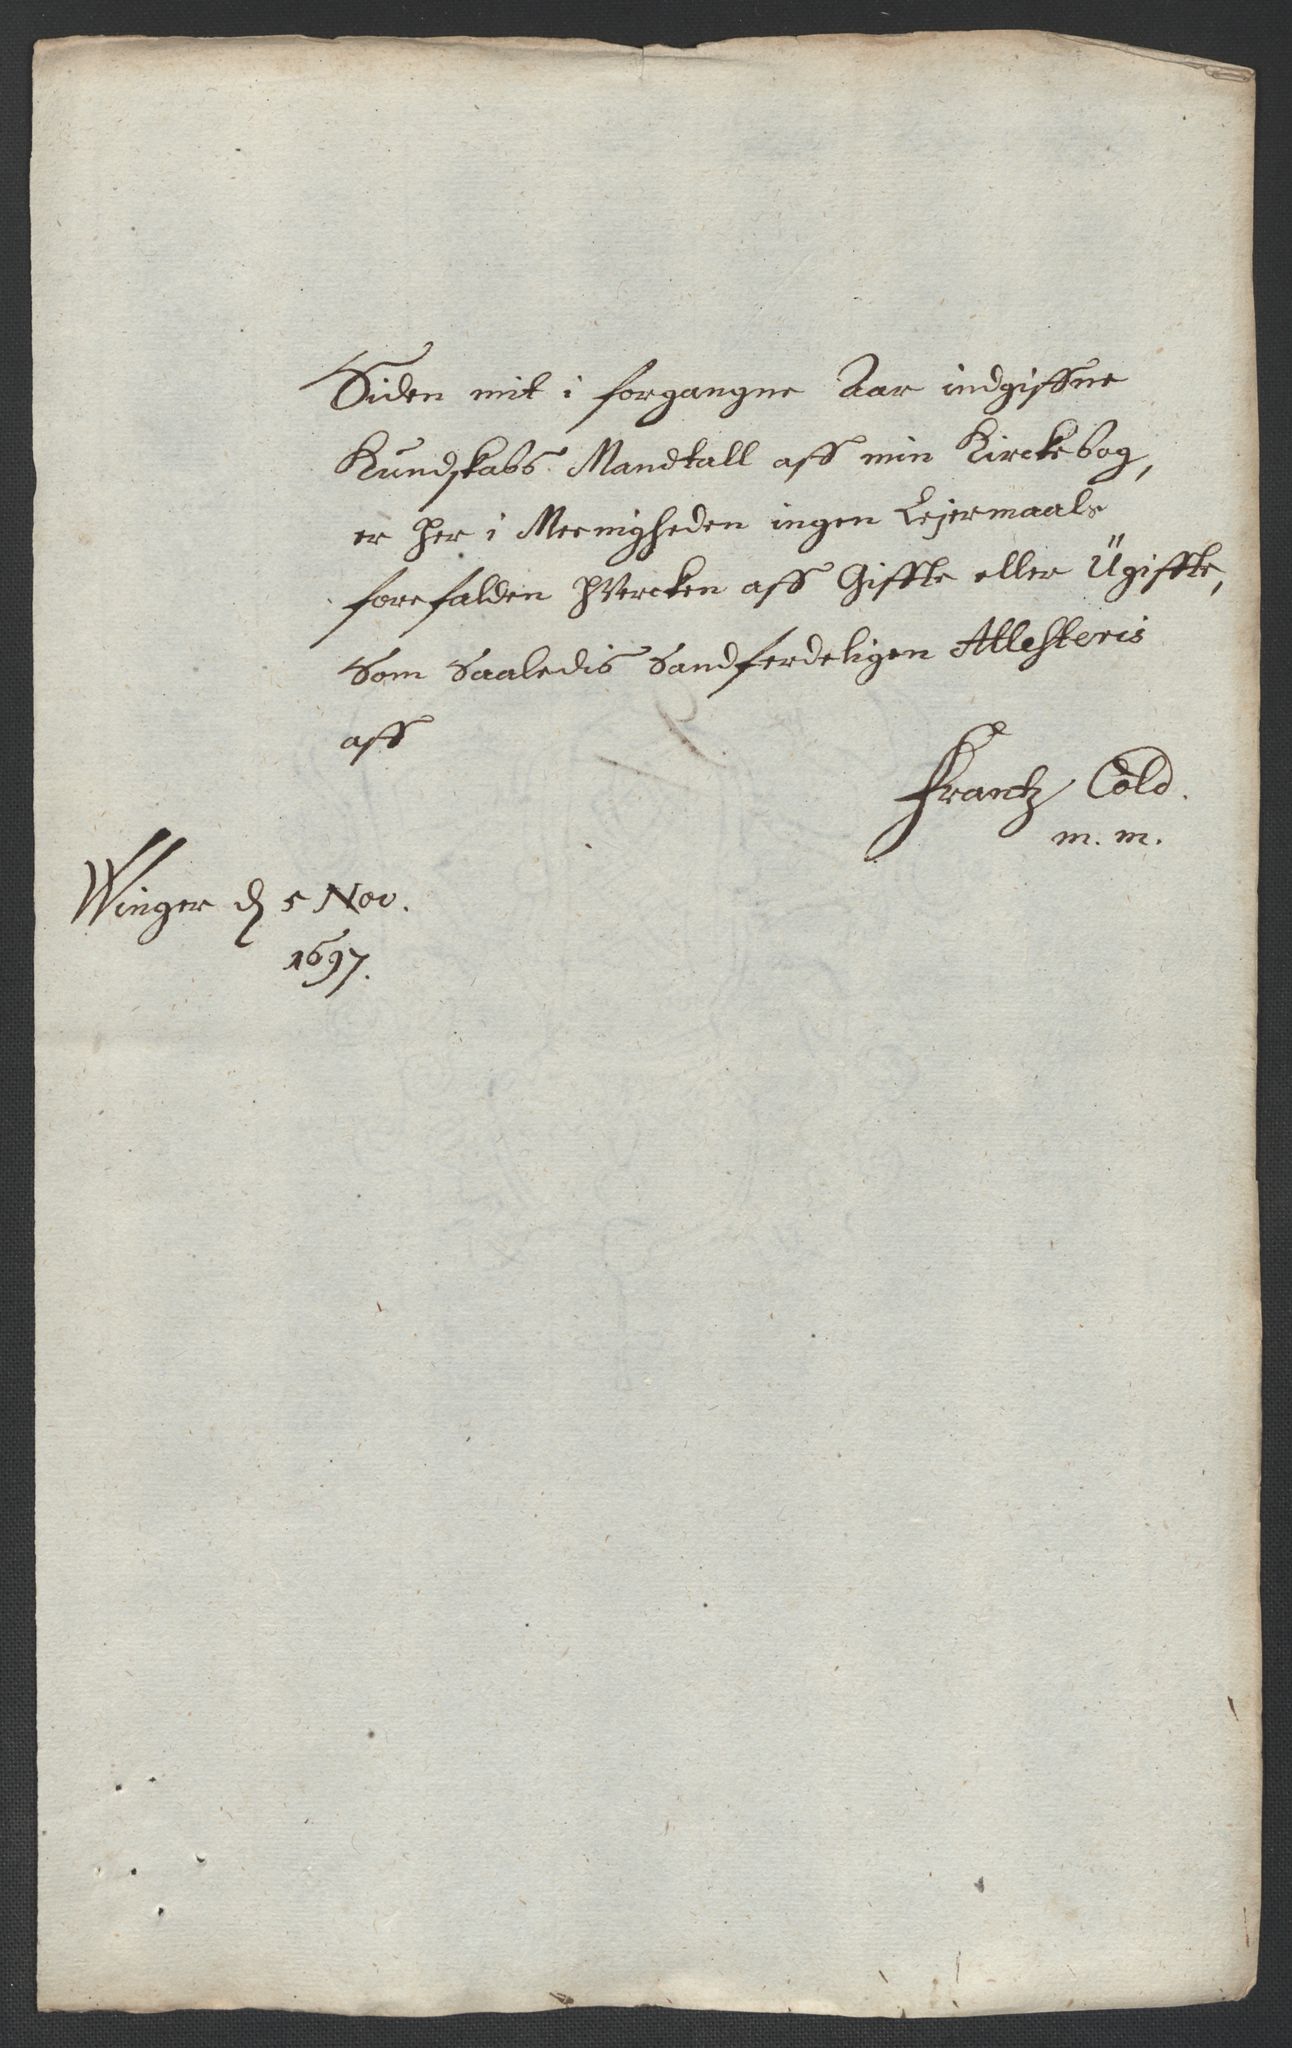 Siden mit i forgangne Aar indgiffne
Kundskabs Mandtall aff min Kirckebog,
er her i Meenigheden ingen Lejermaals
forefalden hVercken aff Giffte eller Ugiffte,
Som Saaledis Sandferdeligen Attesteris
aff
Frantz Cold.
m. m.
Winger d 5 Nov.
1697.